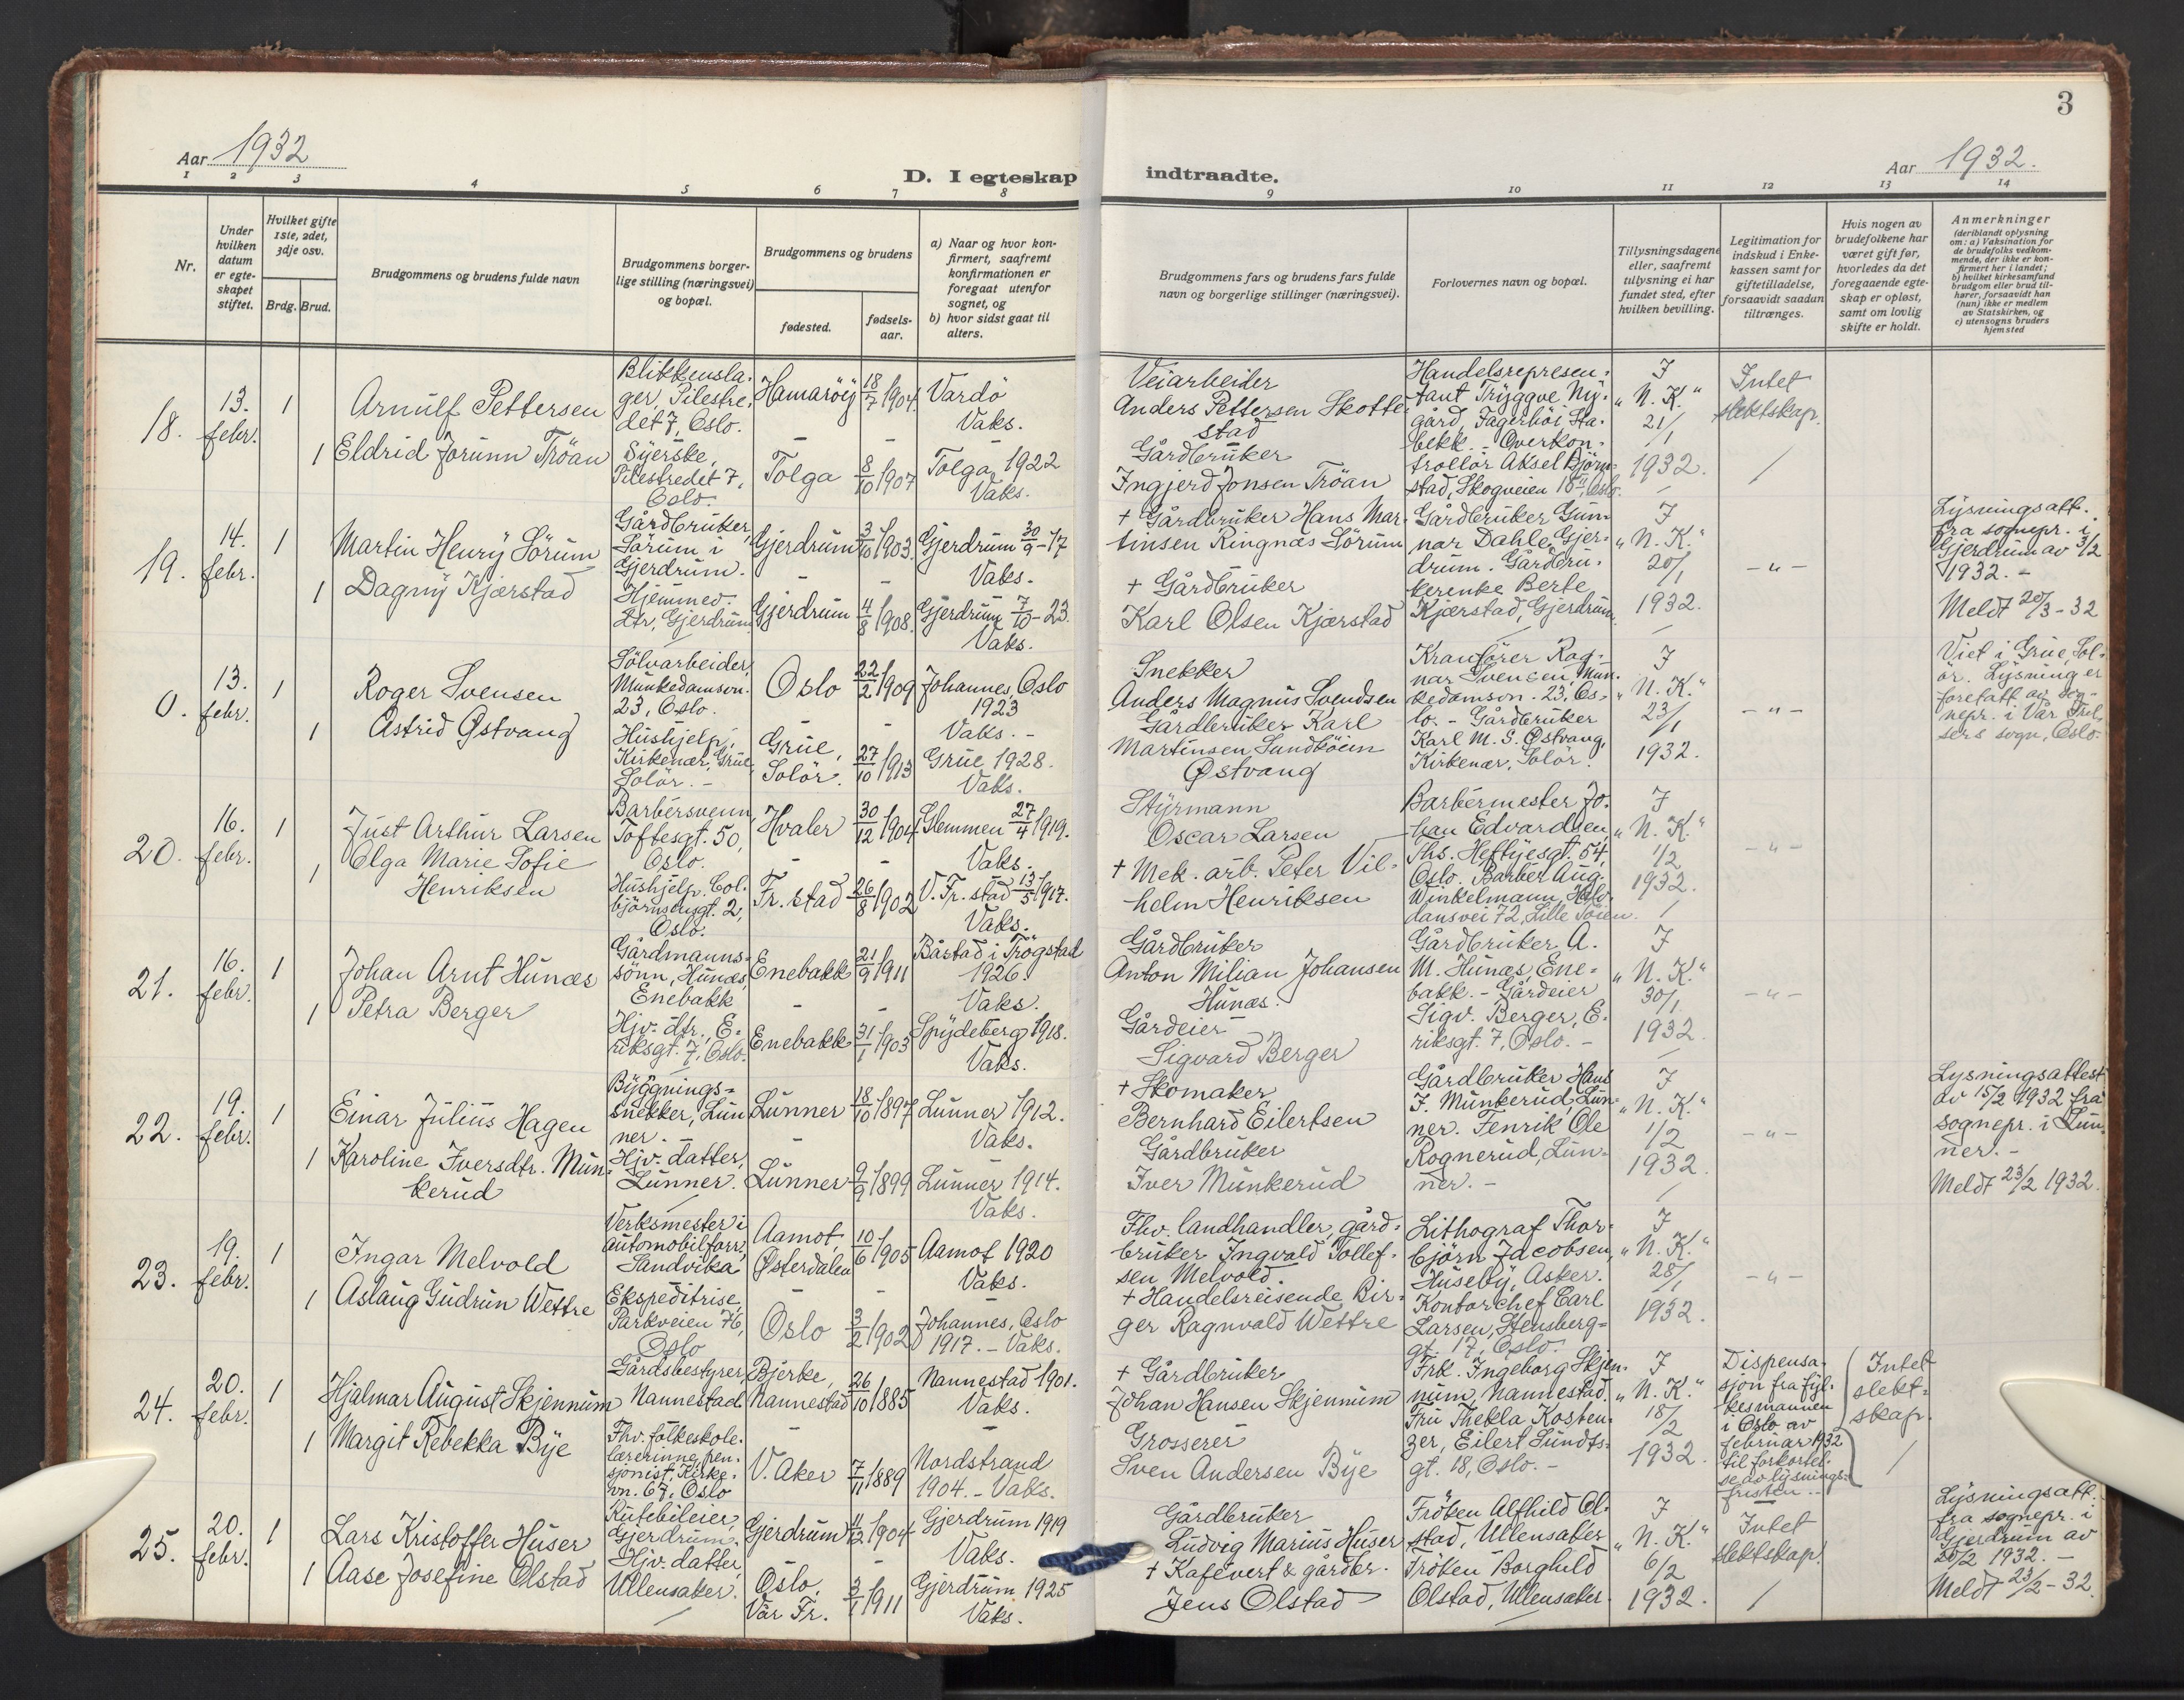 3
Aar 1932
D. I egteskap indtraadte.
Aar 1932.
1 2 3 4 5 6 7 8 9 10 11 12 13 14
Nr.
Under hvilken datum er egteskapet stiftet.
Hvilket gifte 1ste, 2det, 3dje osv.
Brdg. Brud.
Brudgommens og brudens fulde navn
Brudgommens borgerlige stilling (næringsvei) og bopæl.
Brudgommens og brudens
fødested.
fødselsaar.
a) Naar og hvor konfirmert, saafremt konfirmationen er foregaat utenfor sognet, og
b) hvor sidst gaat til alters.
Brudgommens fars og brudens fars fulde navn og borgerlige stillinger (næringsvei).
Forlovernes navn og bopæl.
Tillysningsdagene eller, saafremt tillysning ei har fundet sted, efter hvilken bevilling.
Legitimation for indskud i Enkekassen samt for giftetilladelse, forsaavidt saadan tiltrænges.
Hvis nogen av brudefolkene har været gift før, hvorledes da det foregaaende egteskap er opløst, samt om lovlig skifte er holdt.
Anmerkninger (deriblandt oplysning om: a) Vaksination for de brudefolks vedkommende, der ikke er konfirmert her i landet; b) hvilket kirkesamfund brudgom eller brud tilhører, forsaavidt han (hun) ikke er medlem av Statskirken, og c) utensogns bruders hjemsted
18.
13. febr.
1
Arnulf Pettersen
Blikkensla-
ger, Pilestre-
det 7, Oslo.
Hamarøy
18/7 1904.
Vardö
Vaks.
Veiarbeider
Anders Pettersen Skotte-
stad
Handelsrepresen-
tant Tryggve Ny-
gård, Fagerhöi, Sta-
bekk. - Overkon-
trollör Aksel Björn-
stad, Skogveien 18 II, Oslo.
I
"N. K."
21/1
1932.
Intet
slektskap.
1 Eldrid Jorunn Tröan
Syerske,
Pilestredet 7,
Oslo.
Tolga
8/10 1907
Tolga 1922
Vaks.
Gårdbruker
Ingjerd Jonsen Tröan
19.
14. febr.
1
Martin Henry Sörum
Gårdbruker,
Sörum i
Gjerdrum.
Gjerdrum
3/10 1903.
Gjerdrum 30/9 - 17
Vaks.
+ Gårdbruker Hans Mar-
tinsen Ringnæs Sörum
Gårdbruker Gun-
nar Dahle, Gjer-
drum. Gårdbru-
kerenke Berte
Kjærstad, Gjerdrum.
I
"N. K."
20/1
1932.
-"-
Lysningsatt.
fra sognepr. i
Gjerdrum av 3/2
1932. -
Meldt 20/3 - 32
1 Dagny Kjærstad
Hjemmev.
dtr, Gjerdrum
Gjerdrum
4/8 1908.
Gjerdrum 7/10 - 23.
Vaks.
+ Gårdbruker
Karl Olsen Kjærstad
0.
13. febr.
1
Roger Svensen
Sölvarbeider,
Munkedamsvn.
23, Oslo.
Oslo
22/2 1909
Johannes, Oslo
1923
Vaks. -
Snekker
Anders Magnus Svendsen
Kranförer Rag-
nar Svensen, Mun-
kedamsvn. 23, Os-
lo. - Gårdbruker
Karl M. S. Østvang,
Kirkenær, Solör.
I
"N. K."
23/1
1932.
-"-
Viet i Grue, Sol-
ör. Lysning er
foretatt av sog-
nepr. i Vår Frel-
sers sogn, Oslo.
1 Astrid Østvang
Hushjelp,
Kirkenær, Grue,
Solör. -
Grue,
Solör.
27/10 1913
Grue 1928.
Vaks.
Gårdbruker Karl
Martinsen Sundböien
Østvang
20.
16. febr.
1
Just Arthur Larsen
Barbersvenn,
Toftesgt. 50,
Oslo.
Hvaler
30/12 1904
Glemmen 27/4 1919.
Vaks.
Styrmann
Oscar Larsen
Barbermester Jo-
han Edvardsen,
Ths. Heftyesgt. 54,
Oslo. Barber Aug.
Winkelmann, Halv-
dansvei 72, Lille Töien.
I
"N. K."
1/2
1932.
-"-
1 Olga Marie Sofie
Henriksen
Hushjelp, Col-
björnsensgt. 2,
Oslo.
Fr. stad
26/8 1902
V. Fr. stad 13/5 1917.
Vaks.
+ Mek. arb. Peter Vil-
helm Henriksen
21.
16. febr.
1
Johan Arnt Hunæs
Gårdmanns-
sönn, Hunæs,
Enebakk
Enebakk
21/9 1911
Båstad i Trögstad
1926.
Vaks.
Gårdbruker
Anton Milian Johansen
Hunæs.
Gårdbruker A.
M. Hunæs, Ene-
bakk. - Gårdeier
Sigv. Berger, E-
riksgt. 7, Oslo. -
I
"N. K."
30/1
1932
-"-
1 Petra Berger
Hjv. dtr., E-
riksgt. 7, Oslo.
Enebakk
31/1 1903
Spydeberg 1918.
Vaks.
Gårdeier
Sigvard Berger
22.
19. febr.
1
Einar Julius Hagen
Bygnings-
snekker, Lun
ner. -
Lunner
18/10 1897
Lunner 1912.
Vaks.
+ Skomaker
Bernhard Eilertsen
Gårdbruker Hans
I. Munkerud, Lun-
ner. Fenrik Ole
Rognerud, Lun-
ner. -
I
"N. K."
1/2
1932.
-"-
Lysningsattest
av 15/2 1932 fra
sognepr. i Lun-
ner. -
Meldt 23/2 1932.
1 Karoline Iversdtr. Mun-
kerud
Hjv. datter,
Lunner.
Lunner
9/9 1899
Lunner 1914.
Vaks.
Gårdbruker
Iver Munkerud
23.
19. febr.
1
Ingar Melvold
Verksmester i
automobilforr.,
Sandvika
Aamot,
Østerdalen
10/6 1905
Aamot 1920
Vaks.
Fhv. landhandler, gård-
bruker Ingvald Tollef-
sen Melvold.
Lithograf Thor-
björn Jacobsen,
Huseby, Asker.
Kontorchef Carl
Larsen, Stensberg-
gt. 17, Oslo.
I
"N. K."
28/1
1932.
-"-
1 Aslaug Gudrun Wettre
Ekspeditrise,
Parkveien 76,
Oslo
Oslo
3/2 1902
Johannes, Oslo
1917. - Vaks.
+ Handelsreisende Bir-
ger Ragnvald Wettre
24.
20. febr.
1
Hjalmar August Skjennum
Gårdsbestyrer,
Nannestad.
Bjerke,
Nannestad
26/10 1885
Nannestad 1901.
Vaks.
+ Gårdbruker
Johan Hansen Skjennum
Frk. Ingeborg Skjen-
num, Nannestad.
Fru Thekla Kosten-
zer, Eilert Sundts-
gt. 18, Oslo. -
I
"N. K."
18/2
1932.
Dispensa-
sjon fra fyl-
kesmannen
i Oslo av
februar 1932
til forkortel-
se av lysnings-
fristen. -
Intet
slekt-
skap.
1 Margit Rebekka Bye
Fhv. folkeskole-
lærerinne, pen-
sjonist, Kirke-
vn. 67, Oslo
V. Aker
7/11 1889
Nordstrand
1904. - Vaks.
Grosserer
Sven Andersen Bye
25.
20. febr.
1
Lars Kristoffer Huser
Rutebileier,
Gjerdrum.
Gjerdrum
11/12 1904
Gjerdrum 1919
Vaks.
Gårdbruker
Ludvig Marius Huser
Fröken Alfhild Ol-
stad, Ullensaker
Fröken Borghild
Olstad, Ullensaker.
I
"N. K."
6/2
1932.
Intet
slektskap.
Lysningsatt.
fra sognepr. i
Gjerdrum av
20/2 1932. -
Meldt 23/2 - 32.
1 Aase Josefine Olstad
Hjv. datter,
Ullensaker.
Oslo,
Vår Fr.
3/1 1911
Gjerdrum 1925
Vaks.
+ Kafévert & gårdbr.
Jens Olstad